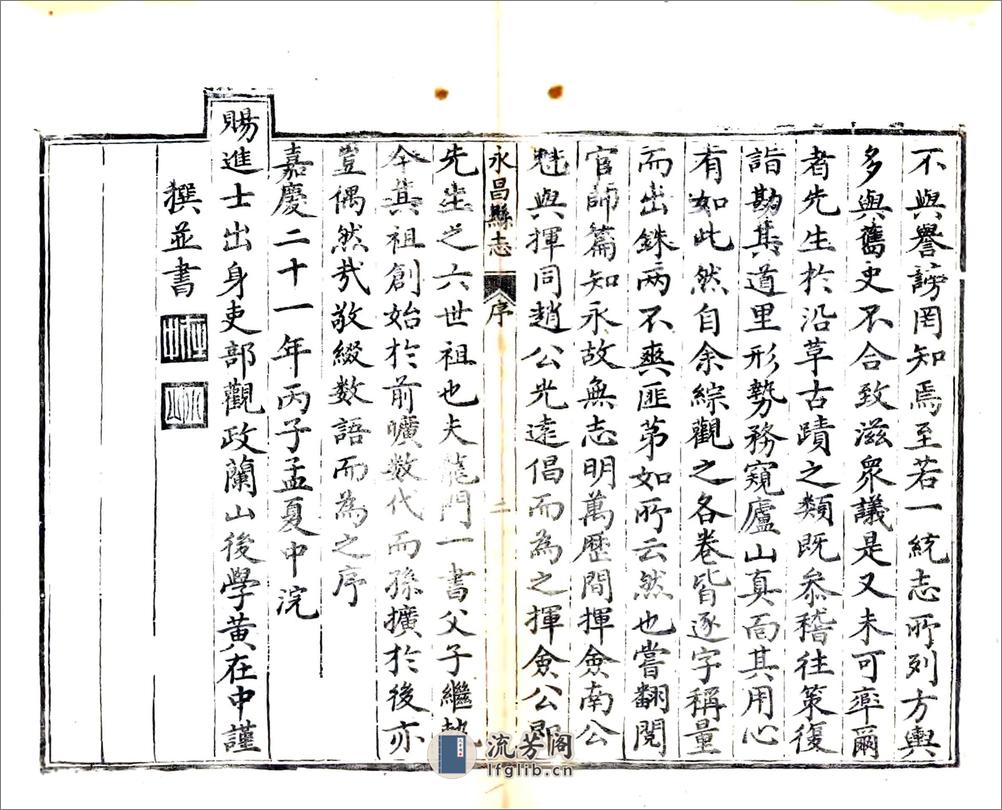 不與譽謗罔知焉至若一統志所列方輿
多與舊史不合致滋眾議是又未可率爾
者先生於沿革古蹟之類既叅稽往策復
詣勘其道里形勢務窺廬山真面其用心
有如此然自余綜觀之各卷皆逐字稱量
而出銖兩不爽匪苐如所云然也嘗翻閱
官師篇知永故無志明萬歷間揮僉南公
魁與揮同趙公光遠倡而為之揮僉公即
永昌縣志 序 二
先生之六世祖也夫龍門一書父子繼執
今其祖創始於前曠數代而孫擴於後亦
豈偶然哉敬綴數語而為之序
嘉慶二十一年丙子孟夏中浣
賜進士出身吏部觀政蘭山後學黃在中謹
撰並書
流芳阁
lfglib.cn